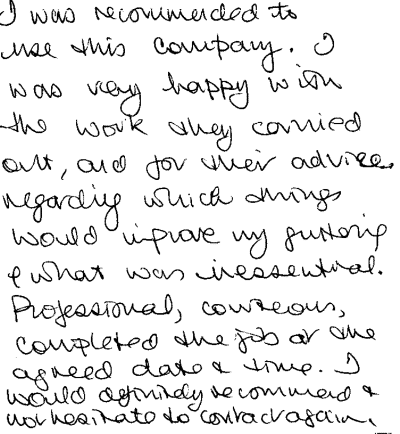 I was recommended to
use this company. I
was very happy with
the work they carried
out, and for their advice
regarding which things
would improve my guttering
& what was inessential.
Professional, courteous,
completed the job at the
agreed date & time. I
would definitely recommend &
not hesitate to contact again.